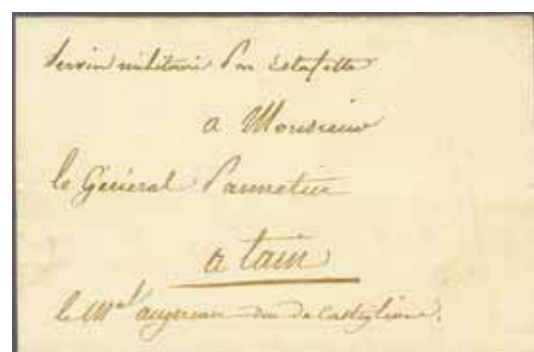 Service militaire Par Estafette
a Monsieur
le Général Pannetier
a tain
le Mal augereau duc de Castiglione.